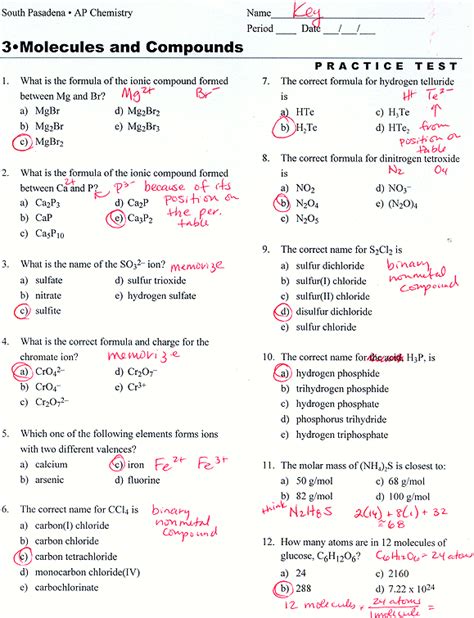 South Pasadena • AP Chemistry
Name Key
Period Date / /
3•Molecules and Compounds
PRACTICE TEST
1. What is the formula of the ionic compound formed
between Mg and Br? Mg2+ Br-
a) MgBr d) Mg2Br2
b) Mg2Br e) Mg2Br3
c) MgBr2
2. What is the formula of the ionic compound formed
between Ca and P? 2+ P3- because of its
position on
the per.
table
a) Ca2P3 d) Ca2P
b) CaP e) Ca3P2
c) Ca5P10
3. What is the name of the SO32– ion? memorize
a) sulfate d) sulfur trioxide
b) nitrate e) hydrogen sulfate
c) sulfite
4. What is the correct formula and charge for the
chromate ion? memorize
a) CrO42– d) Cr2O7–
b) CrO4– e) Cr3+
c) Cr2O72–
5. Which one of the following elements forms ions
with two different valences?
a) calcium c) iron Fe2+ Fe3+
b) arsenic d) fluorine
6. The correct name for CCl4 is binary
nonmetal
compound
a) carbon(I) chloride
b) carbon chloride
c) carbon tetrachloride
d) monocarbon chloride(IV)
e) carbochlorinate
7. The correct formula for hydrogen telluride
is H+ Te2-
a) HTe c) H3Te
b) H2Te d) HTe2 from
position on
table
8. The correct formula for dinitrogen tetroxide
is N2 O4
a) NO2 d) NO3–
b) N2O4 e) (N2O)4
c) N2O5
9. The correct name for S2Cl2 is
a) sulfur dichloride binary
nonmetal
compound
b) sulfur(I) chloride
c) sulfur(II) chloride
d) disulfur dichloride
e) sulfur chloride
10. The correct name for H3P, is
a) hydrogen phosphide
b) trihydrogen phosphide
c) hydrogen phosphate
d) phosphorus trihydride
e) hydrogen triphosphate
11. The molar mass of (NH4)2S is closest to:
a) 50 g/mol c) 68 g/mol
b) 82 g/mol d) 100 g/mol
think N2H8S 2(14) + 8(1) + 32
= 68
12. How many atoms are in 12 molecules of
glucose, C6H12O6? C6H12O6 = 24 atoms
a) 24 c) 2160
b) 288 d) 7.22 x 1024
12 molecules × 24 atoms
1 molecule =